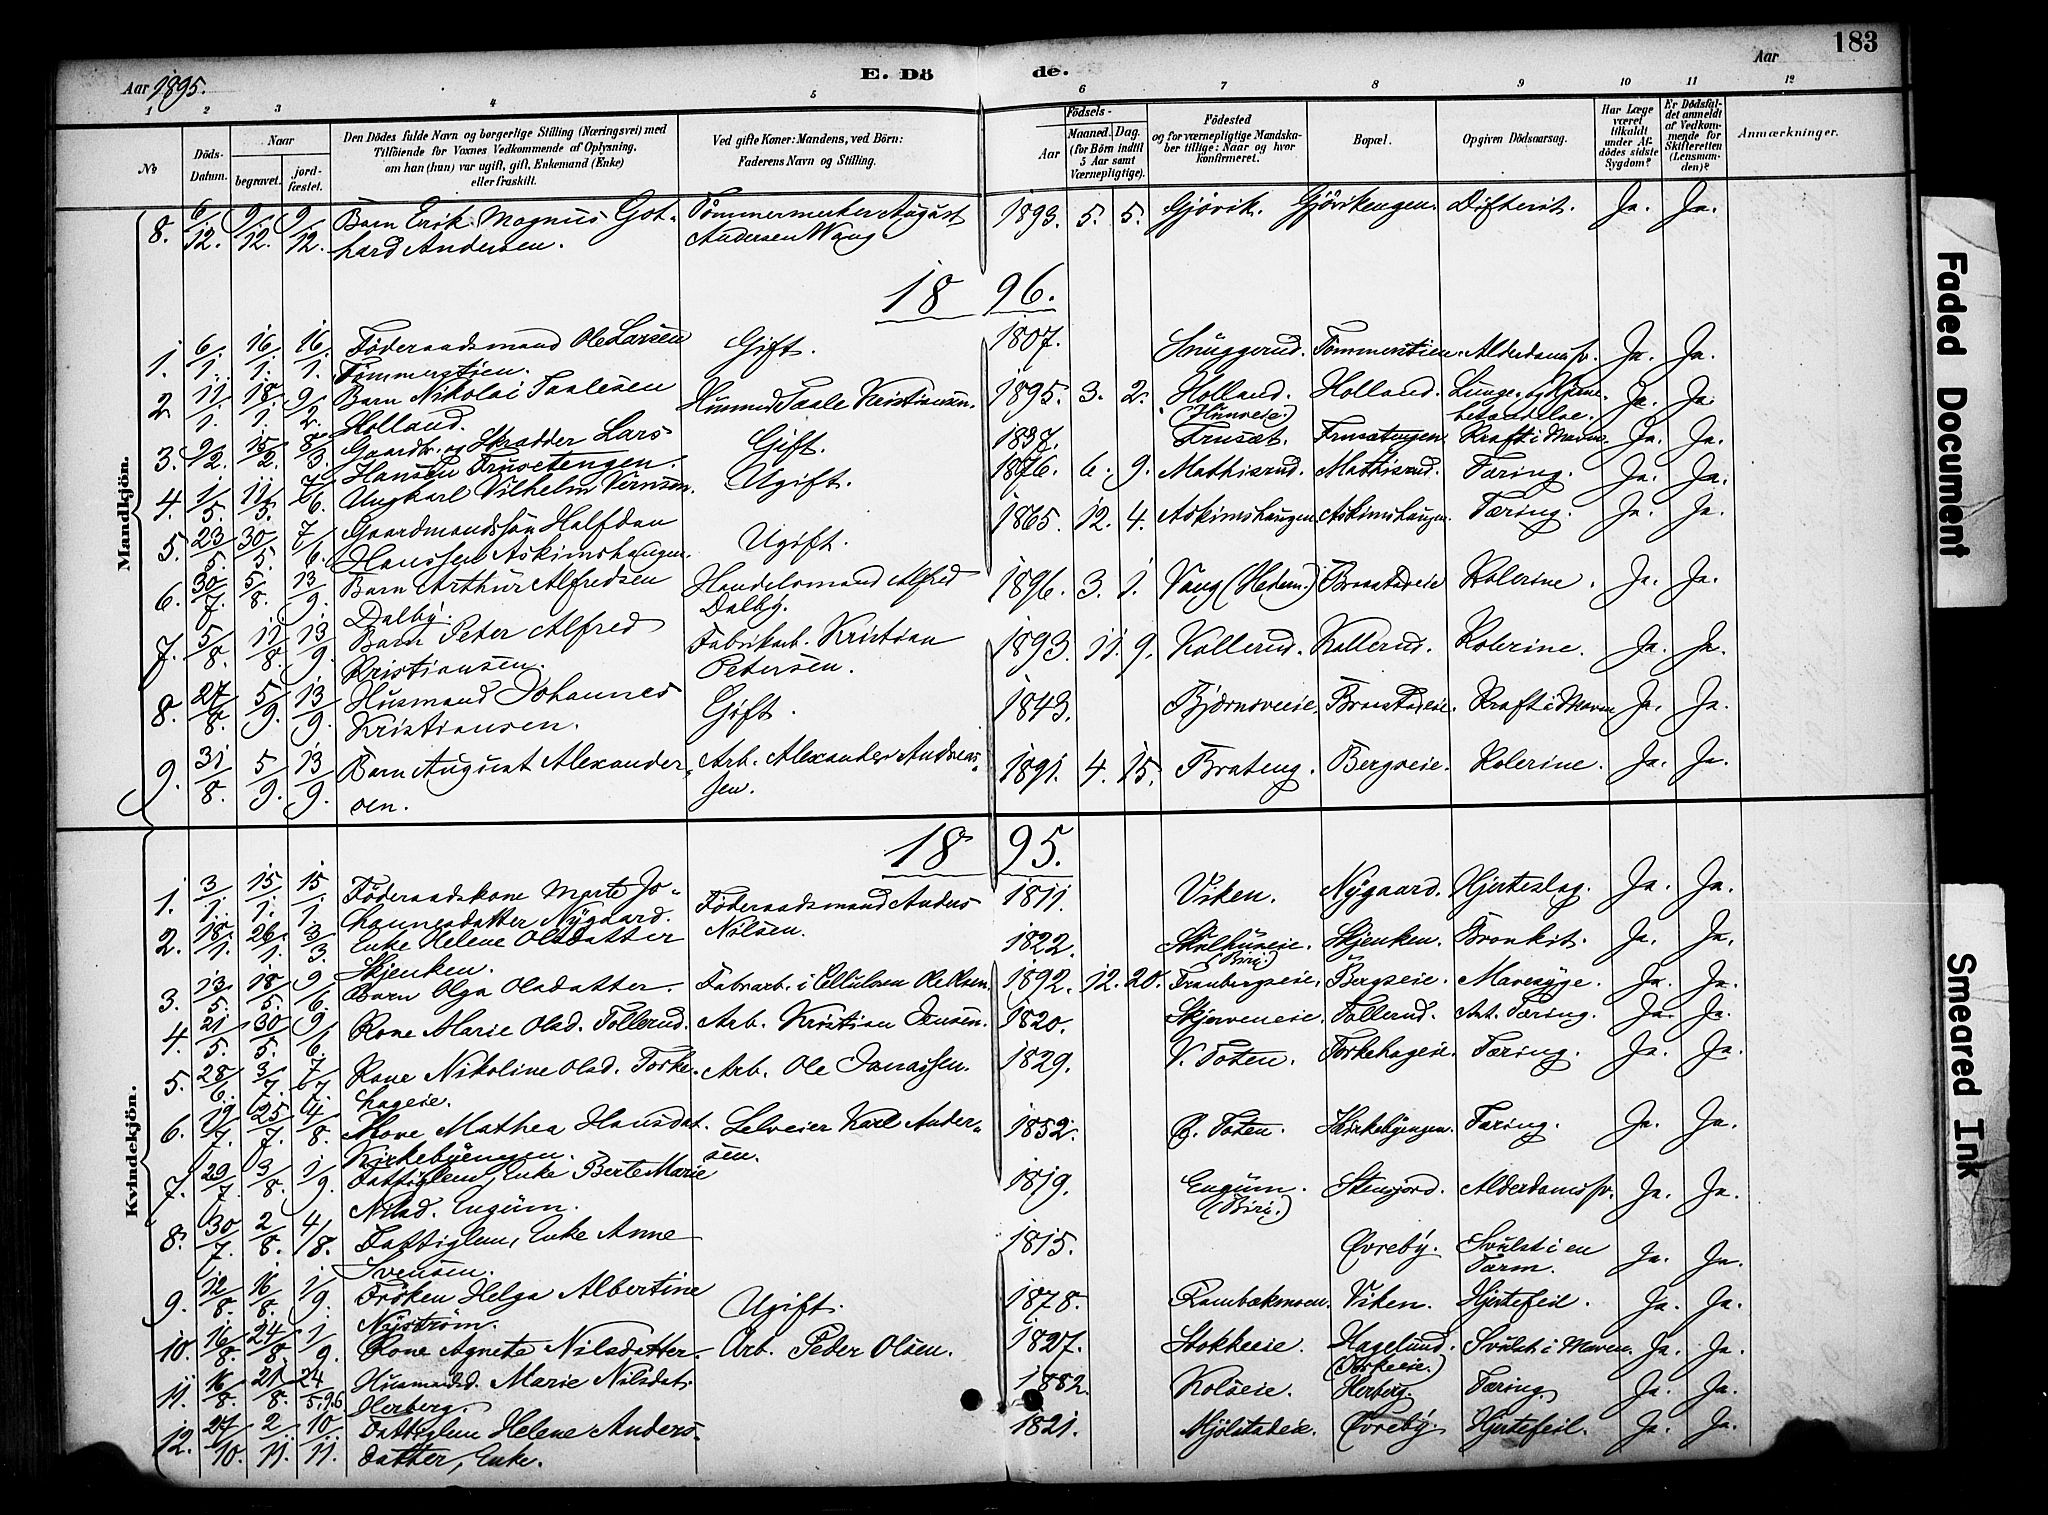 183
Aar 1895.
E. Dö de.
Aar
1 2 3 4 5 6 7 8 9 10 11 12
No
Döds-Datum.
Naar begravet. jordfæstet.
Den Dödes fulde Navn og borgerlige Stilling (Næringsvei) med
Tilföiende for Voxnes Vedkommende af Oplysning,
om han (hun) var ugift, gift, Enkemand (Enke)
eller fraskilt.
Ved gifte Koner: Mandens, ved Börn:
Faderens Navn og Stilling.
Födsels-
Aar
Maaned. Dag.
(for Börn indtil 5 Aar samt Værnepligtige).
Födested
og for værnepligtige Mandskaber tillige: Naar og hvor konfirmeret.
Bopæl.
Opgiven Dödsaarsag.
Har Læge været tilkaldt under Afdödes sidste Sygdom?
Er Dödsfaldet anmeldt af Vedkommende for Skifteretten (Lensmanden)?
Anmærkninger.
Mandkjön.
8. 6/12. 9/12. 9/12. Barn Erik Magnus Got- Tömmermester August 1893. 5. 5. Gjövik. Gjövikengen. Difterit. Ja. Ja.
hard Andersen. Andersen Wang.
18 96.
1. 6/1. 16/1. 16/1. Föderaadsmand Ole Larsen Gift. 1807. Snuggerud. Tömmerstien. Alderdomssv. Ja. Ja.
Tömmerstien.
2. 11/1. 18/1. 9/2. Barn Nikolai Taalesen Husmd Taale Kristiansen. 1895. 3. 2. Holland. Holland. Lunge- Ja. Ja.
Holland. (Hunseie.) betændelse.
3. 9/2. 15/2. 8/3. Gaardbr. og Skrædder Lars Gift. 1837. Frusæt. Frusætengen. Kræft i Maven. Ja. Ja.
Hansen Frusetengen.
4. 1/5. 11/5. 7/6. Ungkarl Vilhelm Ugift. 1876. 6. 9. Mathisrud. Mathisrud. Tæring. Ja. Ja.
5. 23/5. 30/5. 7/6. Gaardmandssön Halfdan Ugift. 1865. 12. 4. Askimshaugen. Askimshaugen. Tæring. Ja. Ja.
Hanssen Askimshaugen.
6. 30/7. 5/8. 13/9. Barn Arthur Alfredsen Handelsmand Alfred 1896. 3. 1. Vang (Hedem.) Braastadeie Kolerine. Ja. Ja.
Dalby. Dalby.
7. 5/8. 11/8. 13/9. Barn Peter Alfred Fabrikarb. Kristian 1893. 11. 9. Kallerud. Kallerud. Kolerine. Ja. Ja.
Kristiansen. Petersen.
8. 27/8. 5/9. 13/9. Husmand Johannes Gift. 1843. Bjørnsveie. Braastadeie. Kræft i Maven Ja. Ja.
Kristiansen.
9. 31/8. 5/9. 13/9. Barn August Alexander- Arb. Alexander Andreas- 1891. 4. 15. Brateng. Bergseie. Kolerine. Ja. Ja.
sen. sen.
Kvindekjön.
18 95.
1. 3/1. 15/1. 15/1. Föderaadskone Marte Jo- Föderaadsmand Anders 1811. Viken. Nygaard. Hjerteslag. Ja. Ja.
hannesdatter Nygaard. Nilsen.
2. 18/1. 26/1. 3/3. Enke Helene Olsdatter 1822. Skjenken. Bronkit. Ja. Ja.
Skjenken. (Biri.)
3. 13/5. 18/5. 9/6. Barn Olga Olsdatter. Fabrarb. i Cellulosen Ole Olsen. 1892. 12. 20. Tranbergseie. Bergseie. Mavesyge. Ja. Ja.
4. 21/5. 30/5. 9/6. Kone Marie Olsd. Tollerud. Arb. Kristian Jensen. 1820. Skjerveneie. Tollerud. Art. Tæring. Ja. Ja.
5. 28/6. 3/7. 7/7. Kone Nikoline Olsd. Torke- Arb. Ole Jonassen. 1829. V. Toten. Torkehageie. Tæring. Ja. Ja.
hageie.
6. 19/7. 25/7. 4/8. Kone Mathea Hansdat. Selveier Karl Ander- 1852. Ø. Toten. Kirkebyengen. Tæring. Ja. Ja.
Kirkebyengen. sen.
7. 29/7. 3/8. 1/9. Fattiglem, Enke Berte Marie 1819. Engum. Stensjord. Alderdomssv. Ja. Ja.
Nilsd. Engum. (Biri.)
8. 30/7. 2/8. 4/8. Fattiglem, Enke Anne 1815. Øvreby. Svulst i en Ja. Ja.
Svensen. Tarm.
9. 12/8. 16/8. 1/9. Fröken Helga Albertine Ugift. 1878. Rambæksmoen. Viken. Hjertefeil. Ja. Ja.
Nyström.
10. 16/8. 24/8. 1/9. Kone Agnete Nilsdatter. Arb. Peder Olsen. 1827. Stokkeeie. Hagelund. Svulst i Maven. Ja. Ja.
(Torkeeie.)
11. 16/8. 21/8. 24/5.96 Husmandsd. Marie Nilsdat. 1882. Kolseie. Herberg. Tæring. Ja. Ja.
Herberg.
12. 27/10. 2/11. 10/11. Fattiglem Helene Anders- 1821. Mjölstadeie. Øvreby. Hjertefeil. Ja. Ja.
datter, Enke.
Faded Document
Smeared Ink